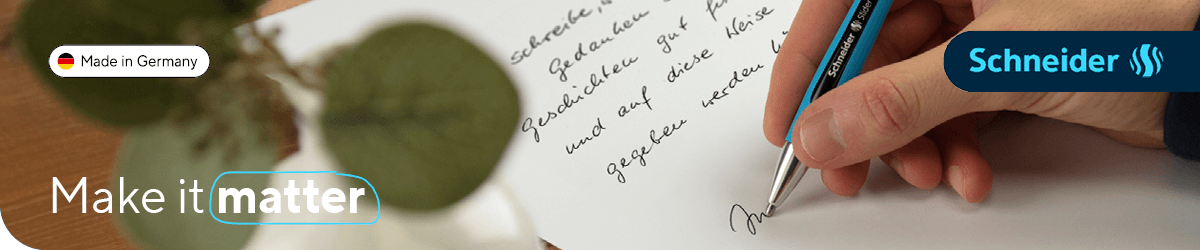 Made in Germany
Make it matter
schreibe,
Gedanken
geschichten gut für
und auf diese Weise
gegeben werden
Schneider Slider
Schneider